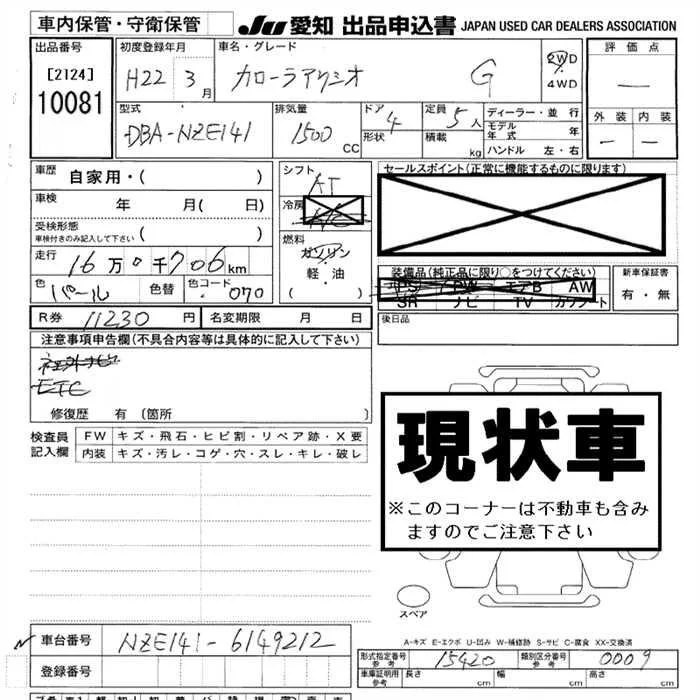 車内保管・守衛保管
JU 愛知 出品申込書 JAPAN USED CAR DEALERS ASSOCIATION
出品番号
[2124]
10081
初度登録年月
H22 3月
車名・グレード
カローラアクシオ G
2WD
4WD
評価点
—
外装 内装
— —
型式
DBA-NZE141
排気量
1500 CC
ドア 4
形状
定員 5人
積載 kg
ディーラー・並行
モデル年式 年
ハンドル 左・右
車歴 自家用・( )
車検 年 月( 日)
受検形態
車検付きのみ記入して下さい ( )
走行 16万0千706km
色 パール 色替 色コード 070
シフト AT
冷房 A/C
燃料
ガソリン
軽・油
( )
セールスポイント(正常に機能するものに限ります)
装備品(純正品に限り○をつけてください)
PS PW エアB AW
SR ナビ TV カワシート
新車保証書
有・無
後日品
R券 11230円 名変期限 月 日
注意事項申告欄(不具合内容等は具体的に記入して下さい)
ETC
修復歴 有 (箇所 )
検査員記入欄
FW キズ・飛石・ヒビ割・リペア跡・X要
内装 キズ・汚レ・コゲ・穴・スレ・キレ・破レ
現状車
※このコーナーは不動車も含み
ますのでご注意下さい
スペア
A-キズ E-エクボ U-凹み W-補修跡 S-サビ C-腐食 XX-交換済
車台番号 NZE141-6149212
登録番号
形式指定番号 参考 15420 類別区分番号 参考 0009
車庫証明用 参考 長さ cm 幅 cm 高さ cm